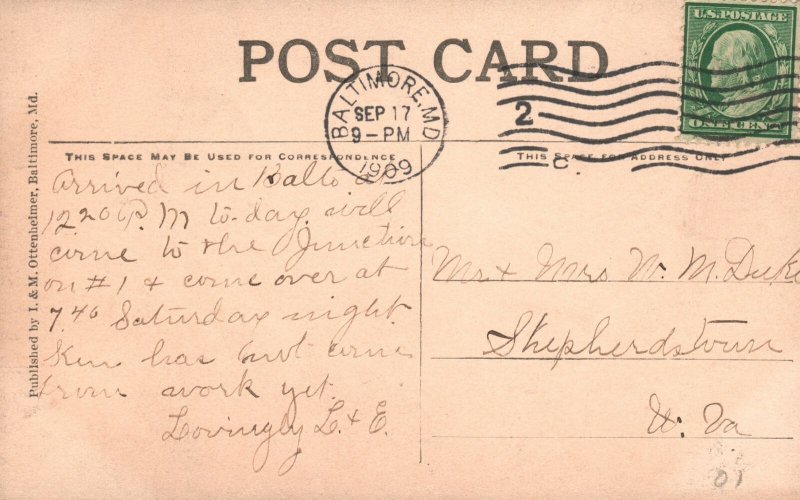 POST CARD
U.S. POSTAGE
ONE CENT
BALTIMORE, MD.
SEP 17
9-PM
1909
2
C.
THIS SPACE MAY BE USED FOR CORRESPONDENCE
THIS SPACE FOR ADDRESS ONLY
Published by I. & M. Ottenheimer, Baltimore, Md.
Arrived in Balto at
12 20 P.M to-day. will
come to the Junction
on #1 & come over at
7.40 Saturday night.
Ken has not come
from work yet.
Lovingly L. & E.
Mr & Mrs W. M. Duke
Shepherdstown
W. Va
01